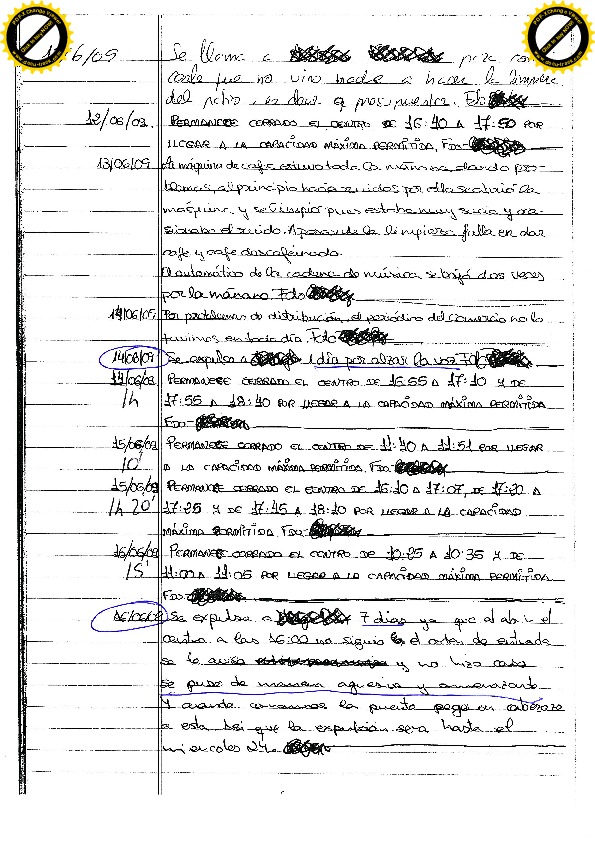 6/09 Se llama a para con
cade que no vino nadie a hacer la limpieza
del patio, es dar el presupuestra. Fdo
12/06/09. PERMANECE CERRADO EL CENTRO DE 16:40 A 17:50 POR
LLEGAR A LA CAPACIDAD MÁXIMA PERMITIDA. FDO-
13/06/09 La máquina de café estuvo toda la mañana dando pro-
blemas, al principio hacía ruidos por ella se abrió la
maquina, y se limpió pues estaba muy sucia y oca-
sionaba el ruido. A pesar de la limpieza falla en dar
cafe y cafe descafeinado.
El automático de la cadena de música se bajó dos veces
por la mañana Fdo
14/06/09 Por problemas de distribución, el periodico del Comercio no lo
tuvimos en todo día. Fdo
14/06/09 Se expulsa a 1 día por alzar la voz Fdo
14/06/09 PERMANECE CERRADO EL CENTRO DE 16:55 A 17:10 Y DE
1h 17:55 A 18:40 POR LLEGAR A LA CAPACIDAD MÁXIMA PERMITIDA
FDO-
15/06/09 PERMANECE CERRADO EL CENTRO DE 11:40 A 11:51 POR LLEGAR
10' A LA CAPACIDAD MÁXIMA PERMITIDA. FDO-
15/06/09 PERMANECE CERRADO EL CENTRO DE 16:10 A 17:07, DE 17:20 A
1h 20' 17:25 Y DE 17:45 A 18:10 POR LLEGAR A LA CAPACIDAD
MÁXIMA PERMITIDA. FDO-
16/06/09 PERMANECE CERRADO EL CENTRO DE 10:25 A 10:35 Y DE
15' 11:00 A 11:05 POR LLEGAR A LA CAPACIDAD MÁXIMA PERMITIDA
FDO-
16/06/09 Se expulsa a 7 dias ya que al abrir el
centro a las 16:00 no siguio el orden de entrada
se le avisa y no hizo caso
se puso de manera agresiva y amenazante
Y cuando cerramos la puerta pego un cabezazo
a esta asi que la expulsion sera hasta el
miercoles 24.